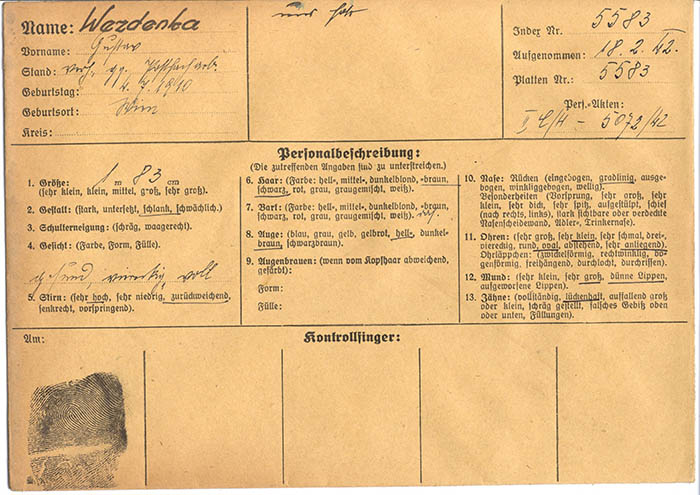 Name: Wezdenka
Vorname: Gustav
Stand: verh.
Geburtstag: 4. 7. 1910
Geburtsort: Wien
Kreis:
Index Nr. 5583
Aufgenommen: 18. 2. 42.
Platten Nr.: 5583
Pers.-Akten:
II C/4 - 5072/42
Personalbeschreibung:
(Die zutreffenden Angaben sind zu unterstreichen.)
1. Größe: 1 m 83 cm
(sehr klein, klein, mittel, groß, sehr groß).
2. Gestalt: (stark, untersetzt, schlank, schwächlich.)
3. Schulterneigung: (schräg, waagerecht).
4. Gesicht: (Farbe, Form, Fülle).
gesund, viereckig, voll
5. Stirn: (sehr hoch, sehr niedrig, zurückweichend,
senkrecht, vorspringend).
6. Haar: (Farbe: hell-, mittel-, dunkelblond, -braun,
schwarz, rot, grau, graugemischt, weiß).
7. Bart: (Farbe: hell-, mittel-, dunkelblond, -braun,
schwarz, rot, grau, graugemischt, weiß).
8. Auge: (blau, grau, gelb, gelbrot, hell-, dunkel-
braun, schwarzbraun).
9. Augenbrauen: (wenn vom Kopfhaar abweichend,
gefärbt):
Form:
Fülle:
10. Nase: Rücken (eingebogen, gradlinig, ausge-
bogen, winkliggebogen, wellig).
Besonderheiten (Vorsprung, sehr groß, sehr
klein, sehr dick, sehr spitz, aufgestülpt, schief
(nach rechts, links), stark sichtbare oder verdeckte
Nasenscheidewand, Adler-, Trinkernase).
11. Ohren: (sehr groß, sehr klein, sehr schmal, drei-,
viereckig, rund, oval, abstehend, sehr anliegend).
Ohrläppchen: (zwickelförmig, rechtwinklig, bo-
genförmig, freihängend, durchlocht, durchrissen).
12. Mund: (sehr klein, sehr groß, dünne Lippen,
aufgeworfene Lippen).
13. Zähne: (vollständig, lückenhaft, auffallend groß
oder klein, schräg gestellt, falsches Gebiß oben
oder unten, Füllungen).
Am:
Kontrollfinger: